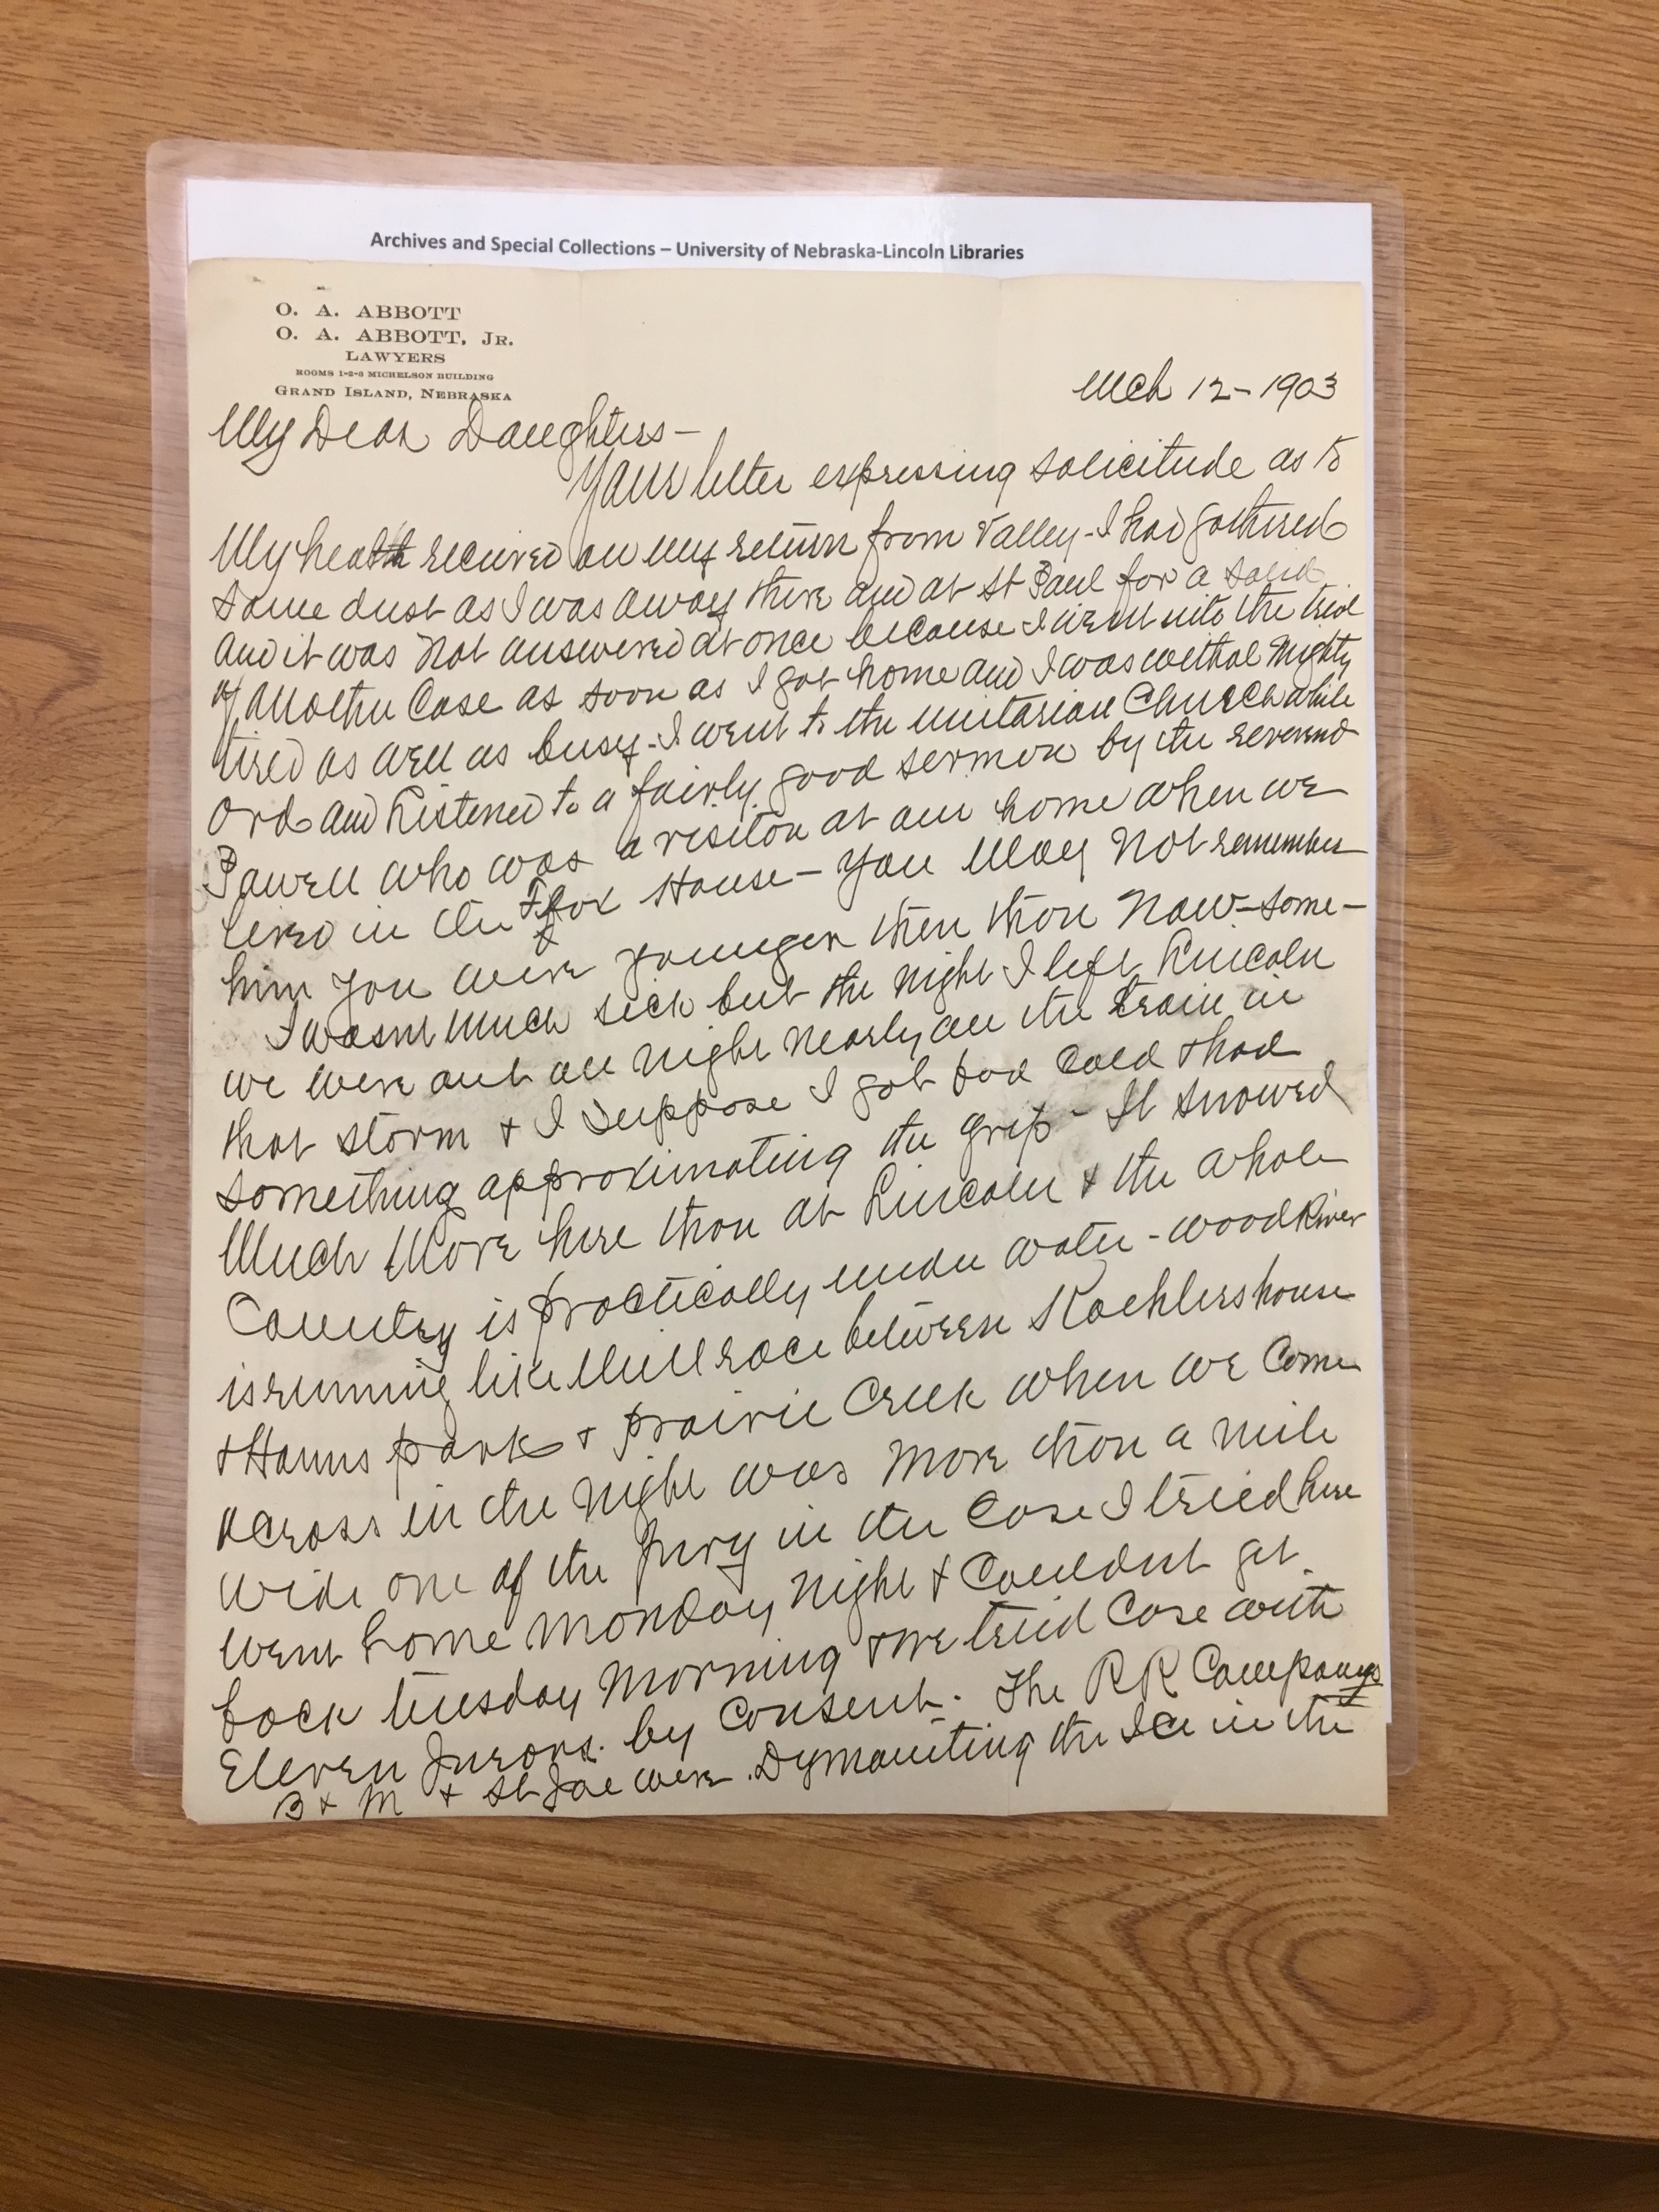 Archives and Special Collections – University of Nebraska-Lincoln Libraries
O. A. ABBOTT
O. A. ABBOTT, JR.
LAWYERS
ROOMS 1-2-3 MICHELSON BUILDING
GRAND ISLAND, NEBRASKA
Mch 12-1903
My Dear Daughters-
Your letter expressing solicitude as to
My health received on my return from Valley - I had gathered
some dust as I was away there and at St Paul for a
and it was not answered at once because I went into the trial
of another Case as soon as I got home and I was withal Mighty
tired as well as busy - I went to the unitarian Church while
Ord and Listened to a fairly good sermon by the reverend
Powell who was a visitor at our home when we
lived in the House - You May Not remember
him you were younger then than Now - some -
I wasnt Much sick but the Night I left Lincoln
we were out all Night Nearly all the train in
that storm & I suppose I got bad Cold & had
something approximating the grip - It snowed
Much More here than at Lincoln & the whole
Country is practically under water - Wood River
is running like Mill race between Koehlers house
& Hanns park & prairie Creek when we Come
across in the Night was More than a mile
wide one of the Jury in the Case I tried here
went home Monday Night & Couldnt get
back tuesday Morning & we tried Case with
Eleven Jurors. by Consent. The RR Companys
B & M & St Joe were Dymaniting the Ice in the